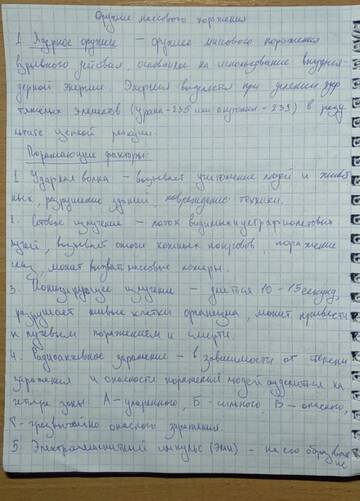 Оружие массового поражения
1. Ядерное оружие - оружие массового поражения
взрывного действия, основанное на использование внутрия-
дерной энергии. Энергия выделяется при делении
тяжелых элементов (урана-235 или -239) в резу
цепной реакции.
Поражающие факторы:
1. Ударная волна - вызывает уничтожение людей и живот
ных, разрушение зданий, повреждение техники.
2. Световое излучение - поток видимых
лучей, вызывает ожоги кожных покровов, поражение
глаз, может вызвать массовые пожары.
3. излучение - длится 10-15 секунд,
разрушает живые клетки организма, может привести
к лучевым поражением и смерти.
4. Радиоактивное заражение - в зависимости от степени
заражения и опасности поражения людей на
четыре зоны: А - умеренного, Б - сильного, В - опасного,
Г - чрезвычайно опасного заражения.
5. Электромагнитный импульс (ЭМИ) - на его